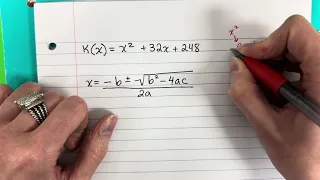 K(x) = x² + 32x + 248
x²
x = −b ± √b² − 4ac
2a